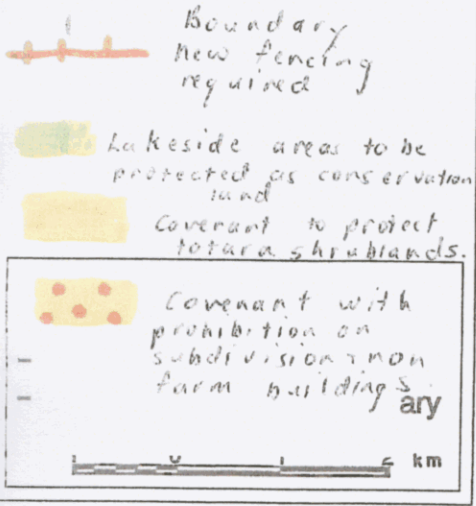 Boundary
new fencing
required
Lakeside areas to be
protected as conservation
land
Covenant to protect
totara shrublands.
Covenant with
prohibition on
subdivision & non
farm buildings.
ary
km